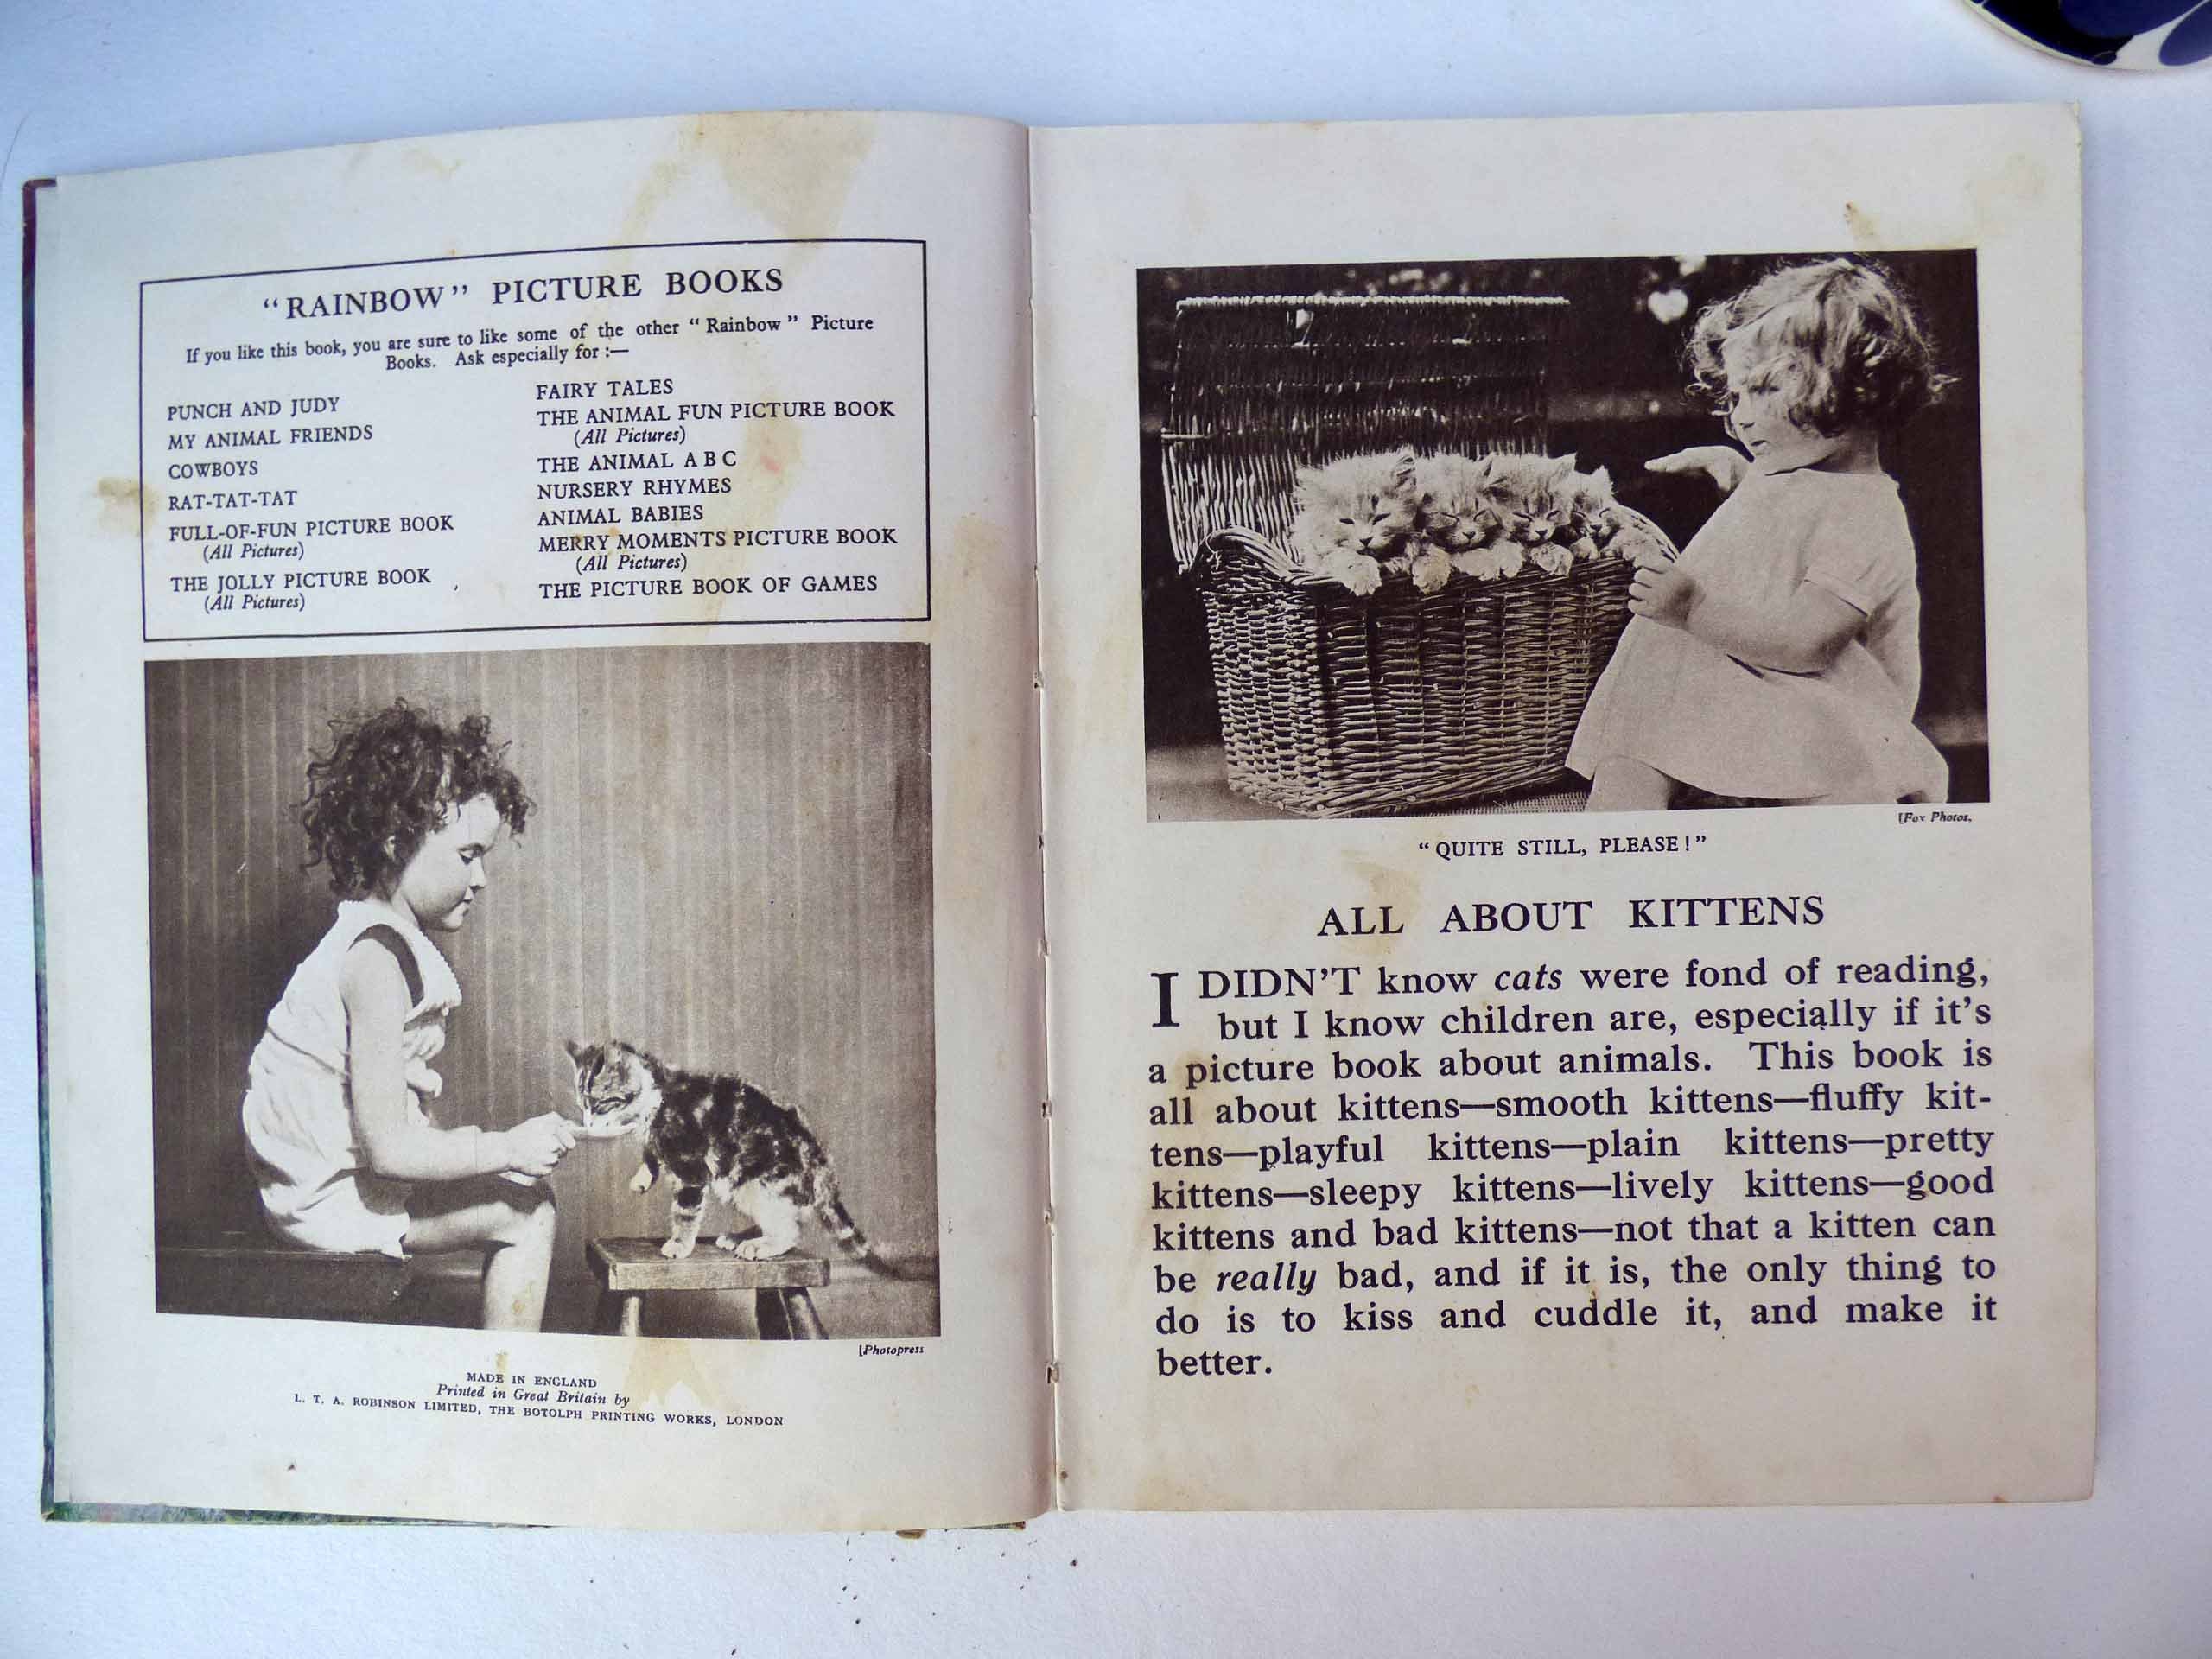 "RAINBOW" PICTURE BOOKS
If you like this book, you are sure to like some of the other "Rainbow" Picture
Books. Ask especially for :—
PUNCH AND JUDY
MY ANIMAL FRIENDS
COWBOYS
RAT-TAT-TAT
FULL-OF-FUN PICTURE BOOK
(All Pictures)
THE JOLLY PICTURE BOOK
(All Pictures)
FAIRY TALES
THE ANIMAL FUN PICTURE BOOK
(All Pictures)
THE ANIMAL A B C
NURSERY RHYMES
ANIMAL BABIES
MERRY MOMENTS PICTURE BOOK
(All Pictures)
THE PICTURE BOOK OF GAMES
[Photopress
MADE IN ENGLAND
Printed in Great Britain by
L. T. A. ROBINSON LIMITED, THE BOTOLPH PRINTING WORKS, LONDON
[Fox Photos.
"QUITE STILL, PLEASE!"
ALL ABOUT KITTENS
I DIDN'T know cats were fond of reading,
but I know children are, especially if it's
a picture book about animals. This book is
all about kittens—smooth kittens—fluffy kit-
tens—playful kittens—plain kittens—pretty
kittens—sleepy kittens—lively kittens—good
kittens and bad kittens—not that a kitten can
be really bad, and if it is, the only thing to
do is to kiss and cuddle it, and make it
better.